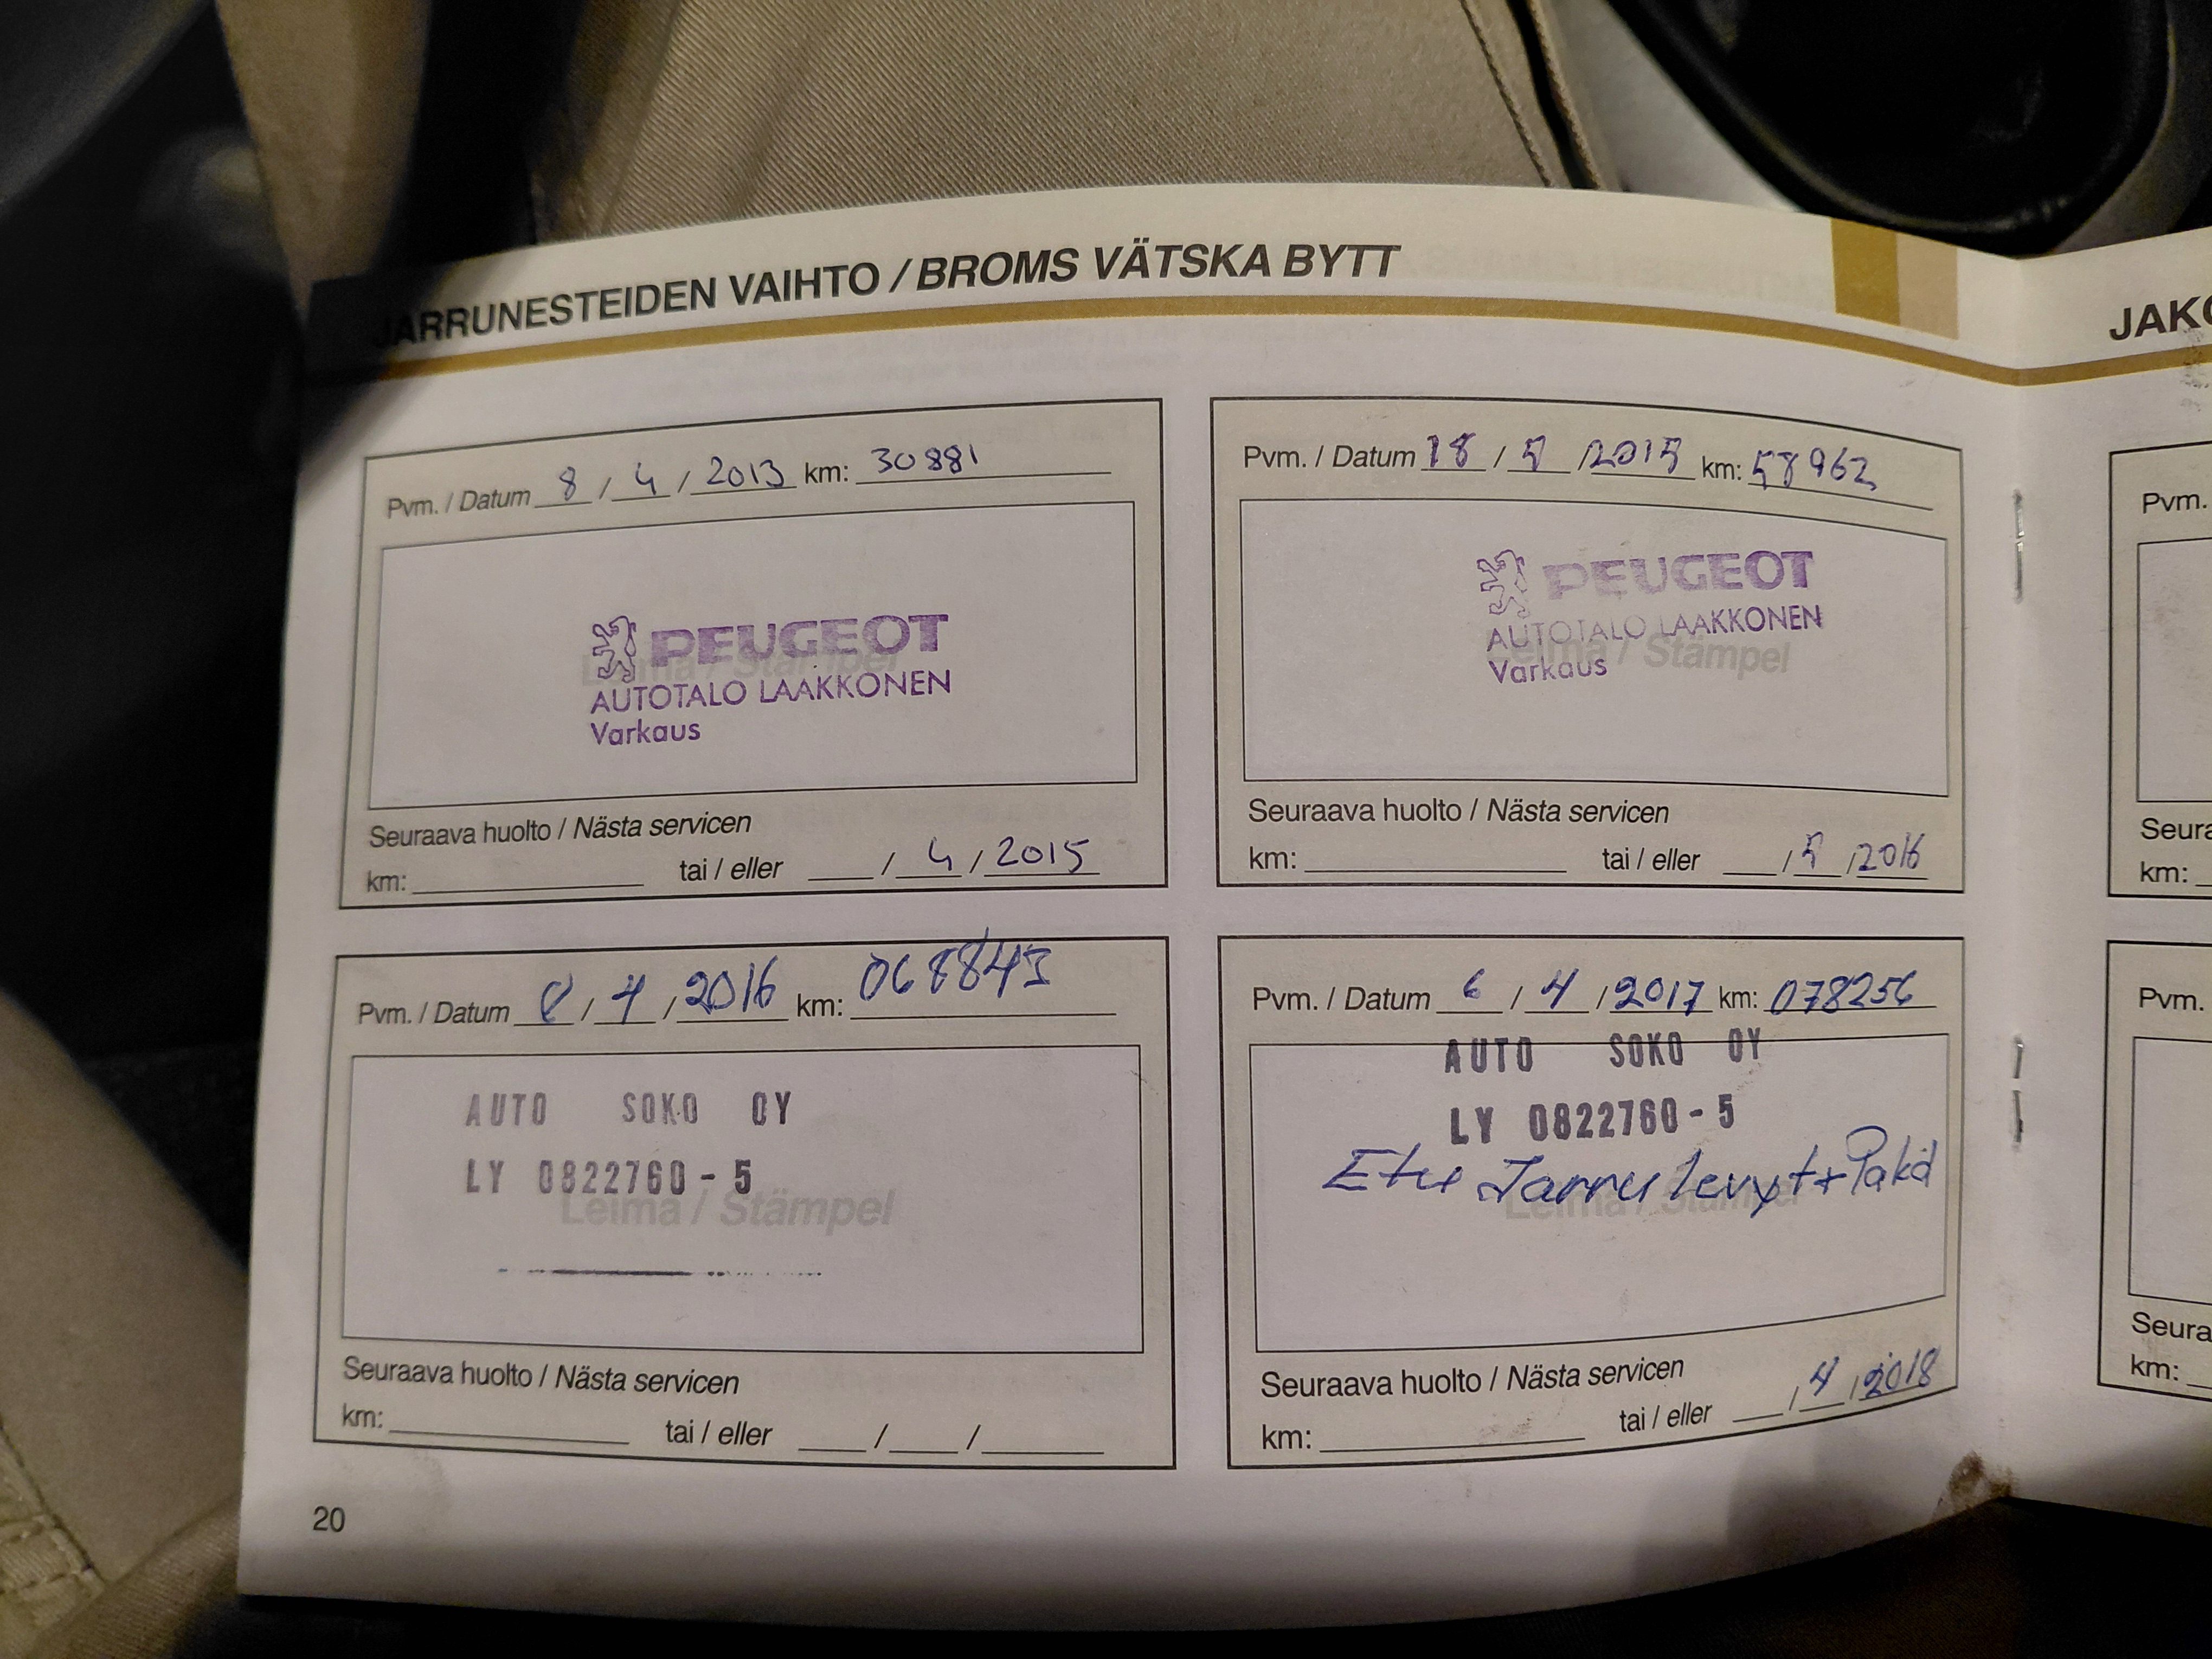 JARRUNESTEIDEN VAIHTO / BROMS VÄTSKA BYTT
Pvm. / Datum 8 / 4 / 2013 km: 30881
PEUGEOT
Leima / Stämpel
AUTOTALO LAAKKONEN
Varkaus
Seuraava huolto / Nästa servicen
km: tai / eller / 4 / 2015
Pvm. / Datum 18 / 5 / 2015 km: 58962
PEUGEOT
AUTOTALO LAAKKONEN
Leima / Stämpel
Varkaus
Seuraava huolto / Nästa servicen
km: tai / eller / 5 / 2016
Pvm. / Datum 8 / 4 / 2016 km: 068843
AUTO SOKO OY
LY 0822760-5
Leima / Stämpel
Seuraava huolto / Nästa servicen
km: tai / eller / /
Pvm. / Datum 6 / 4 / 2017 km: 078256
AUTO SOKO OY
LY 0822760-5
Etu Jarru levyt + Palat
Leima / Stämpel
Seuraava huolto / Nästa servicen
km: tai / eller / 4 / 2018
20
Pvm.
km:
Pvm.
km: